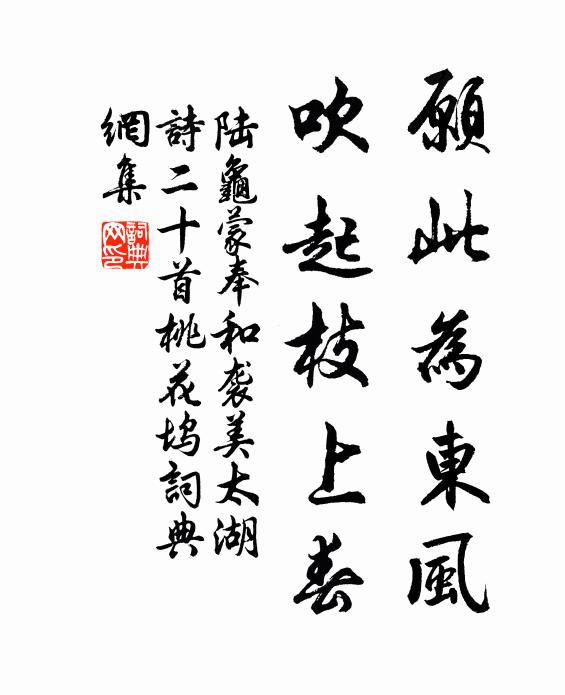 願此為東風
吹起枝上春
陸龜蒙奉和袭美太湖
詩二十首桃花坞詞典
網集
詞典网印